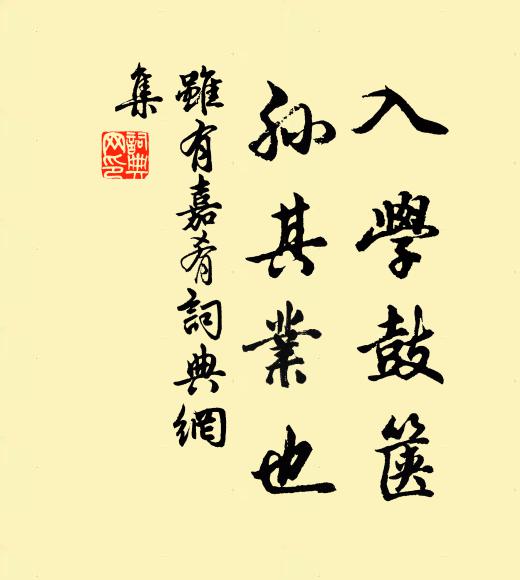 入學鼓篋
孫其業也
雖有嘉肴詞典網
集
詞典
网印